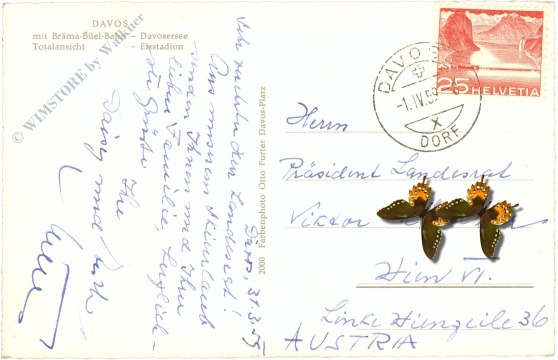 DAVOS
mit Bräma-Büel-Bahn – Davosersee
Totalansicht – Eisstadion
© WIMSTORE by Walkner
Davos, 31.3.55
Sehr verehrter Herr Landesrat!
Aus unserem Skiurlaub
senden Ihnen und Ihrer
lieben Familie, herzlich-
ste Grüsse
Ihr
Daisy und
2000 Farbenphoto Otto Furter Davos-Platz
DAVOS
-1.IV.55
X
DORF
25 HELVETIA
Herrn
Präsident Landesrat
Viktor
Wien VI.
Linke Wienzeile 36
AUSTRIA